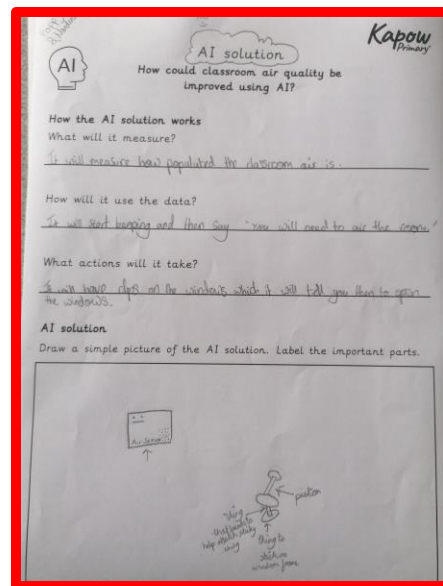 Kapow
Primary
AI
AI solution
How could classroom air quality be
improved using AI?
How the AI solution works
What will it measure?
It will measure how populuted the classroom air is.
How will it use the data?
It will start beeping and then say "you will need to air the room"
What actions will it take?
It will have clips on the windows which it will tell you then to open
the windows.
AI solution
Draw a simple picture of the AI solution. Label the important parts.
Air sensor
position
"thing
help attatch sticky
thing
thing to
stick on
window frame